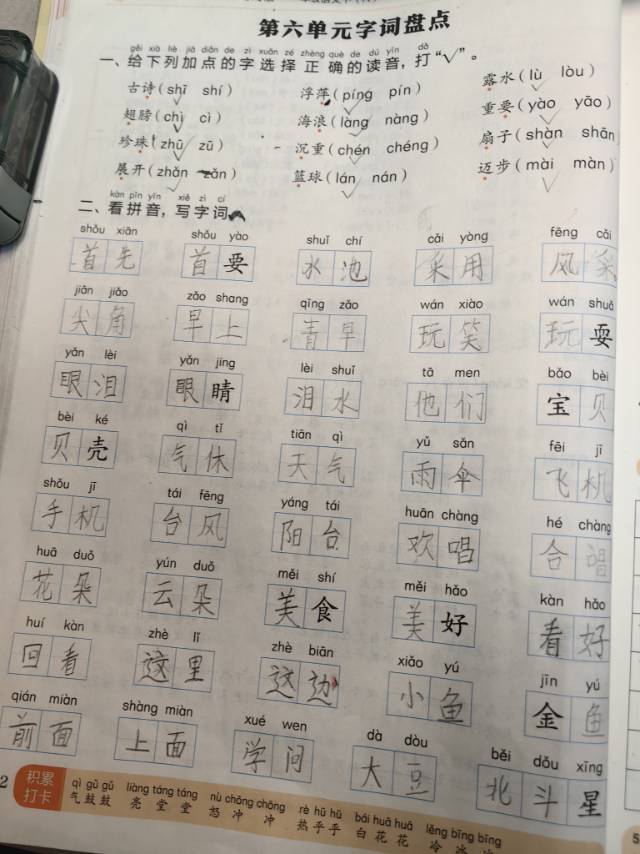 第六单元字词盘点
gěi xià liè jiā diǎn de zì xuǎn zé zhèng què de dú yīn dǎ
一、给下列加点的字选择正确的读音，打“√”。
古诗(shī shí) 浮萍(píng pín) 露水(lù lòu)
翅膀(chì cì) 海浪(làng nàng) 重要(yào yāo)
珍珠(zhū zū) 沉重(chén chéng) 扇子(shàn shān
展开(zhǎn zǎn) 篮球(lán nán) 迈步(mài màn)
kàn pīn yīn xiě zì cí
二、看拼音，写字词。
shǒu xiān shǒu yào shuǐ chí cǎi yòng fēng cǎi
首先 首要 水池 采用 风采
jiān jiǎo zǎo shang qīng zǎo wán xiào wán shuǎ
尖角 早上 青早 玩笑 玩耍
yǎn lèi yǎn jing lèi shuǐ tā men bǎo bèi
眼泪 眼睛 泪水 他们 宝贝
bèi ké qì tǐ tiān qì yǔ sǎn fēi jī
贝壳 气休 天气 雨伞 飞机
shǒu jī tái fēng yáng tái huān chàng hé chàng
手机 台风 阳台 欢唱 合唱
huā duǒ yún duǒ měi shí měi hǎo kàn hǎo
花朵 云朵 美食 美好 看好
huí kàn zhè lǐ zhè biān xiǎo yú jīn yú
回看 这里 这边 小鱼 金鱼
qián miàn shàng miàn xué wen dà dòu běi dǒu xīng
前面 上面 学问 大豆 北斗星
2 积累打卡
qì gǔ gǔ liàng táng táng nù chōng chōng rè hū hū bái huā huā lěng bīng bīng
气鼓鼓 亮堂堂 怒冲冲 热乎乎 白花花 冷冰